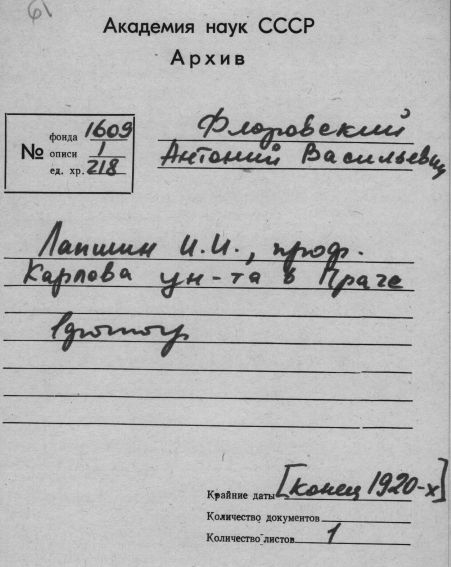 61
Академия наук СССР
Архив
№
фонда 1609
описи 1
ед. хр. 218
Флоровский
Антоний Васильевич
Лапшин И.И., проф.
Карлова ун-та в Праге
Крайние даты [конец 1920-х]
Количество документов
Количество листов 1